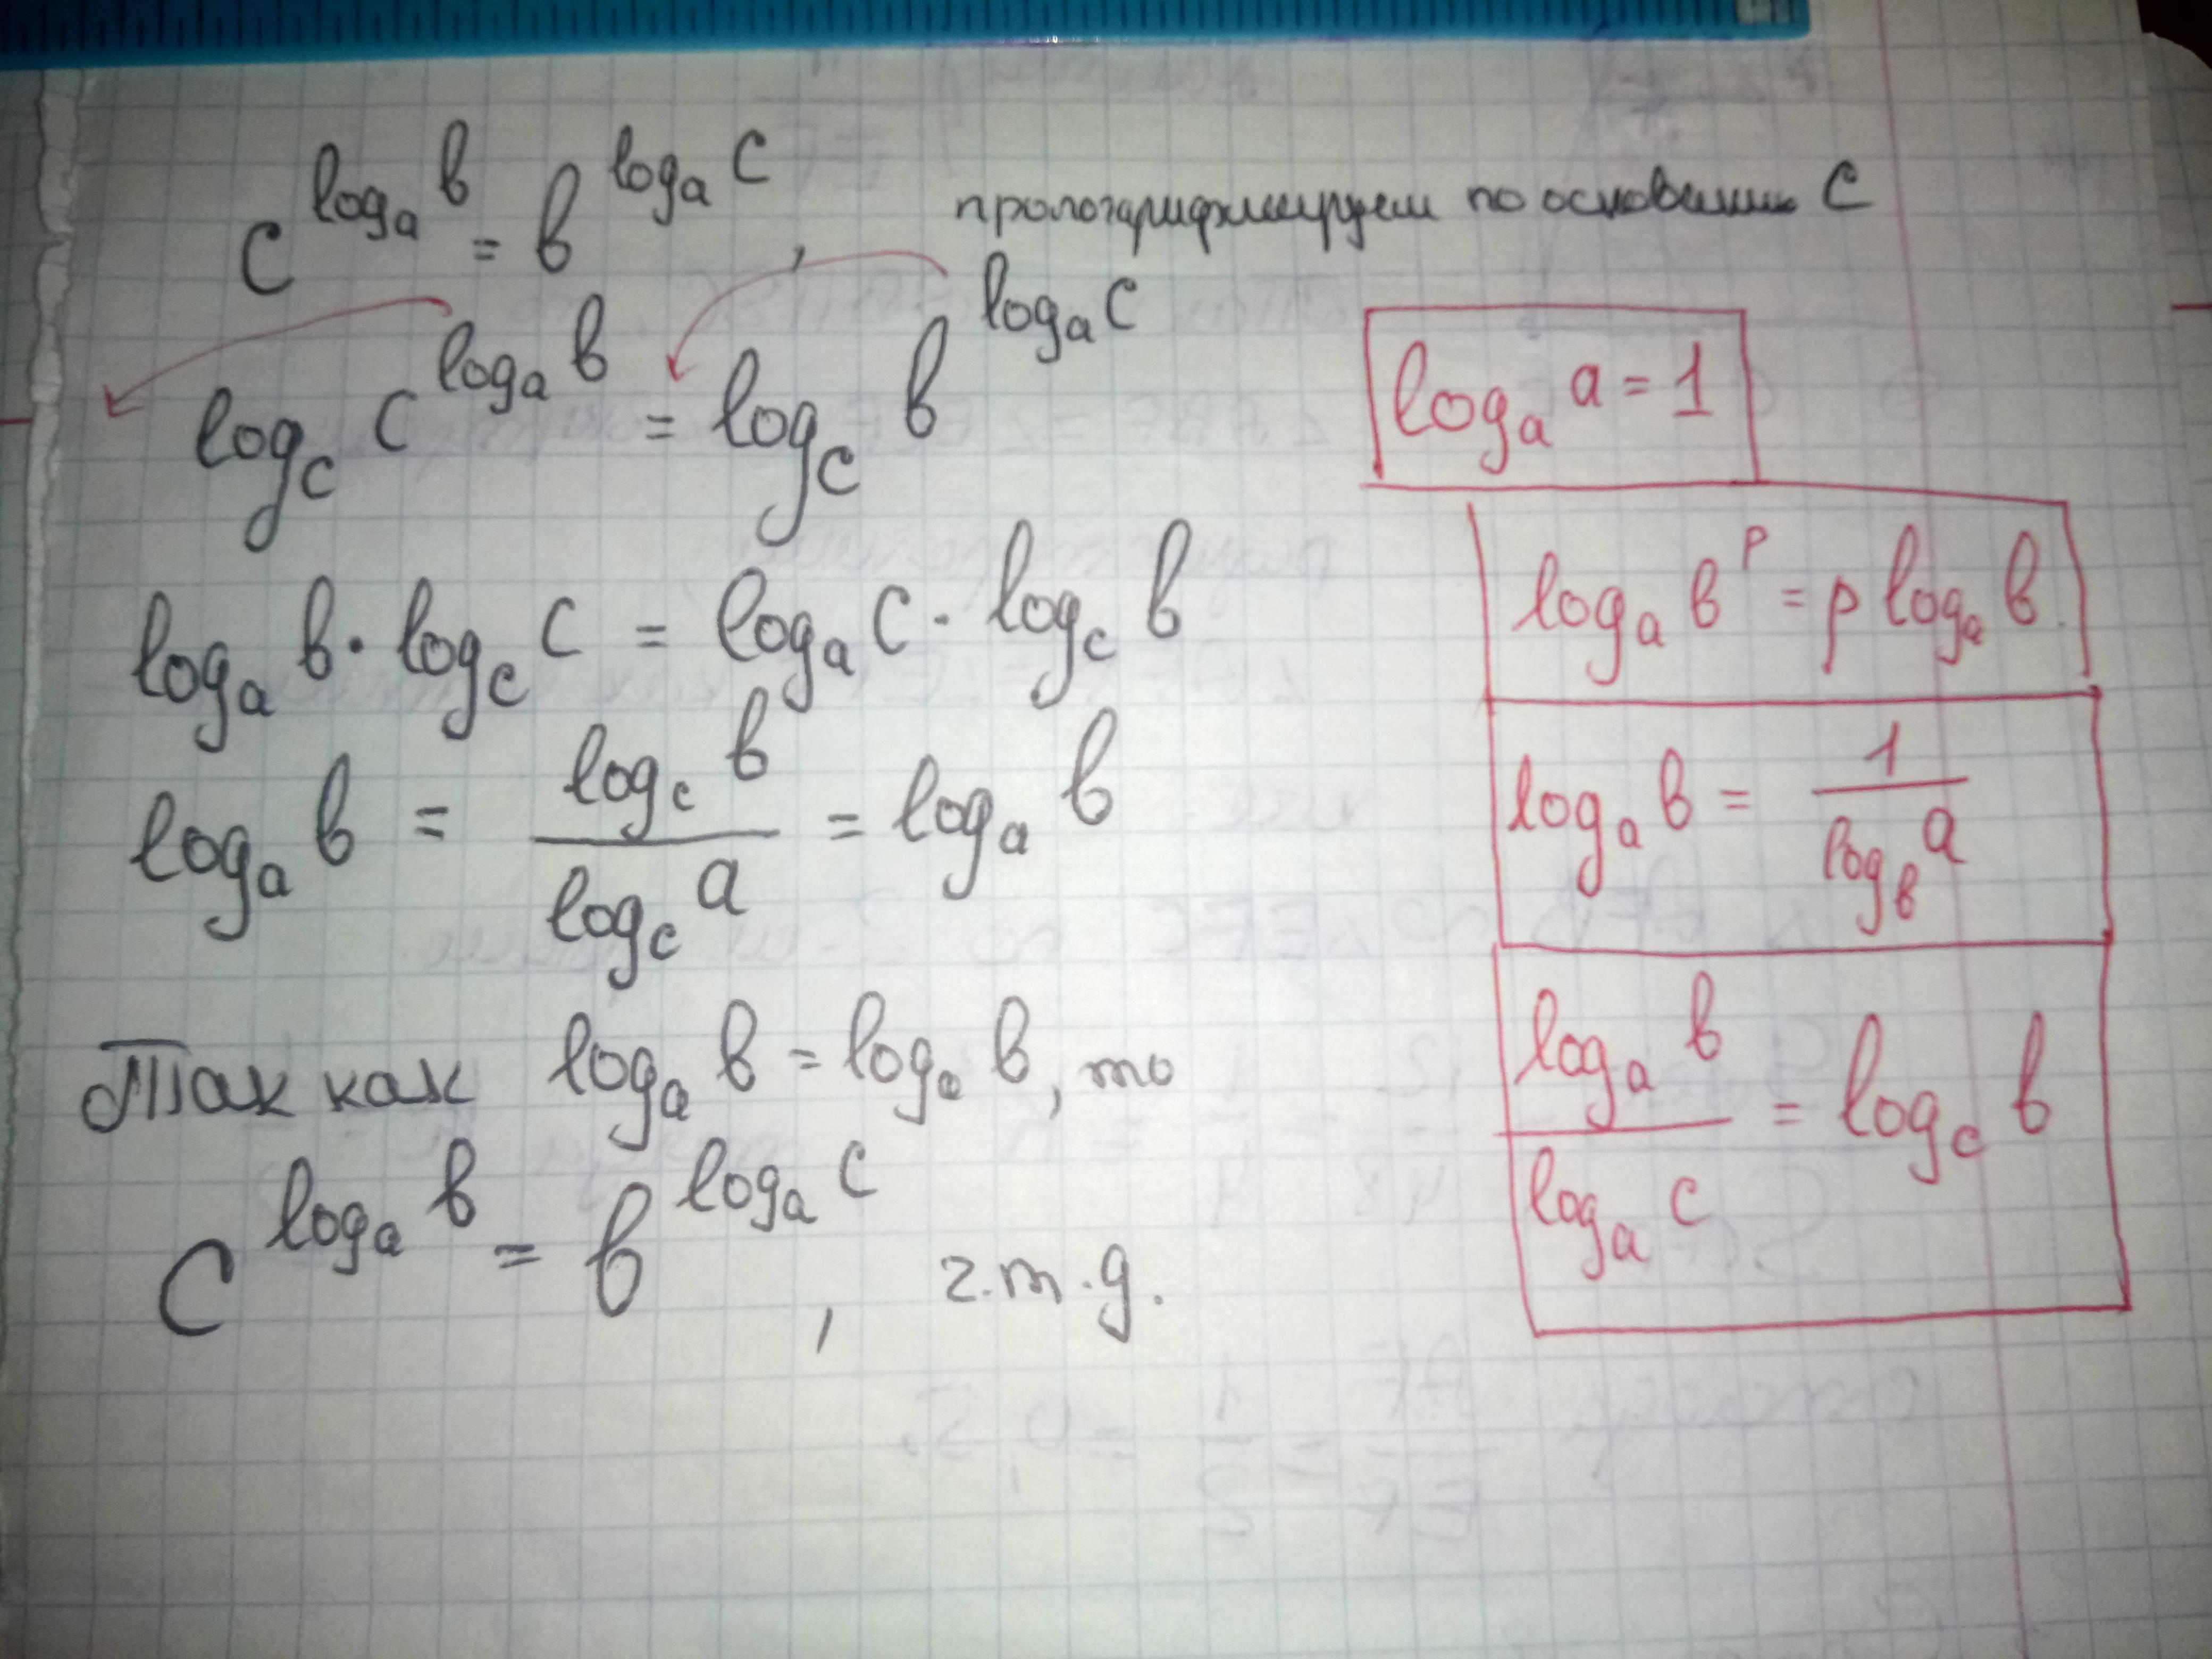 c^{log_a b} = b^{log_a c}, прологарифмируем по основанию c
log_c c^{log_a b} = log_c b^{log_a c}
log_a b · log_c c = log_a c · log_c b
log_a b = \frac{log_c b}{log_c a} = log_a b
Так как log_a b = log_a b, то
c^{log_a b} = b^{log_a c}, ч.т.д.
log_a a = 1
log_a b^p = p log_a b
log_a b = \frac{1}{log_b a}
\frac{log_a b}{log_a c} = log_c b